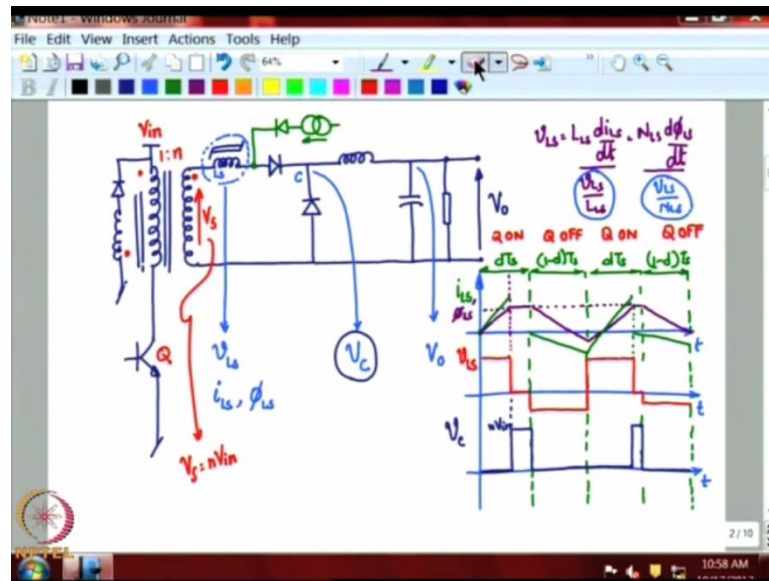 Note1 - Windows Journal
File Edit View Insert Actions Tools Help
64%
B I
Vin
1:n
Ls
C
Vs
Q
V₀
V_Ls
i_Ls, ϕ_Ls
V_c
V₀
V_s = nVin
V_Ls = L_Ls di_Ls/dt = N_Ls dϕ_Ls/dt
V_Ls/L_Ls
V_Ls/N_Ls
Q ON Q OFF Q ON Q OFF
dTs (1-d)Ts dTs (1-d)Ts
i_Ls,
ϕ_Ls
t
V_Ls
t
V_c
nVin
t
NPTEL
2 / 10
10:58 AM